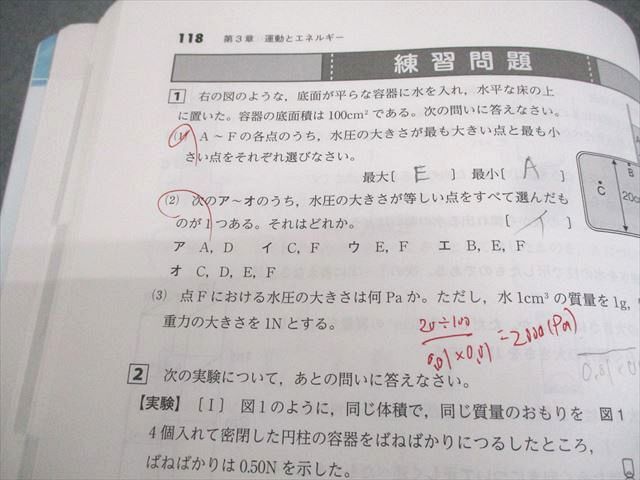 118 第3章 運動とエネルギー
練習問題
1 右の図のような，底面が平らな容器に水を入れ，水平な床の上
に置いた。容器の底面積は100cm²である。次の問いに答えなさい。
(1) A～Fの各点のうち，水圧の大きさが最も大きい点と最も小
さい点をそれぞれ選びなさい。
最大[ E ] 最小[ A
(2) 次のア～オのうち，水圧の大きさが等しい点をすべて選んだも
のが1つある。それはどれか。 イ ]
ア A, D イ C, F ウ E, F エ B, E, F
オ C, D, E, F
(3) 点Fにおける水圧の大きさは何Paか。ただし，水1cm³の質量を1g，
重力の大きさを1Nとする。
20÷100
0.01×0.01
=2000(Pa)
2 次の実験について，あとの問いに答えなさい。
【実験】 〔Ⅰ〕 図1のように，同じ体積で，同じ質量のおもりを
4個入れて密閉した円柱の容器をばねばかりにつるしたところ，
ばねばかりは0.50Nを示した。
図1
B
C
20c